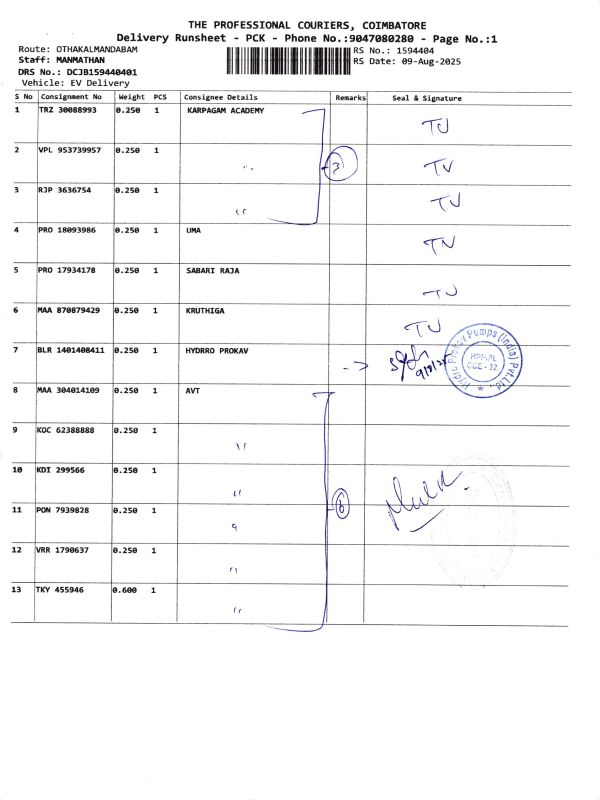 THE PROFESSIONAL COURIERS, COIMBATORE
Delivery Runsheet - PCK - Phone No.:9047080280 - Page No.:1
Route: OTHAKALMANDABAM
RS No.: 1594404
Staff: MANMATHAN
RS Date: 09-Aug-2025
DRS No.: DCJB159440401
Vehicle: EV Delivery
S No Consignment No Weight PCS Consignee Details Remarks Seal & Signature
1 TRZ 30088993 0.250 1 KARPAGAM ACADEMY TU
2 VPL 953739957 0.250 1 " 3 TU
3 RJP 3636754 0.250 1 " TU
4 PRO 18093986 0.250 1 UMA TU
5 PRO 17934178 0.250 1 SABARI RAJA TU
6 MAA 870879429 0.250 1 KRUTHIGA TU
7 BLR 1401408411 0.250 1 HYDRRO PROKAV 9/8/25
Hydro Prokav Pumps (India) Pvt.Ltd.
8 MAA 304014109 0.250 1 AVT
9 KOC 62388888 0.250 1 "
10 KDI 299566 0.250 1 "
11 PON 7939828 0.250 1 " 6
12 VRR 1790637 0.250 1 "
13 TKY 455946 0.600 1 "